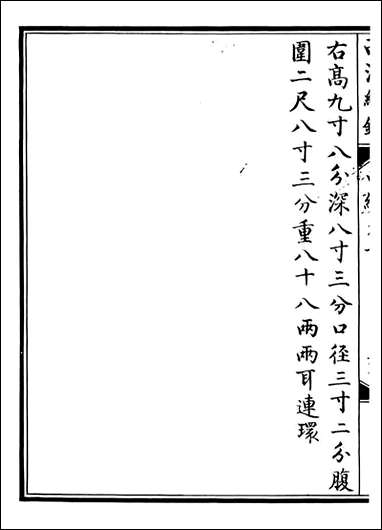 右髙九寸八分深八寸三分口徑三寸二分腹
圍二尺八寸三分重八十八兩兩耳連環